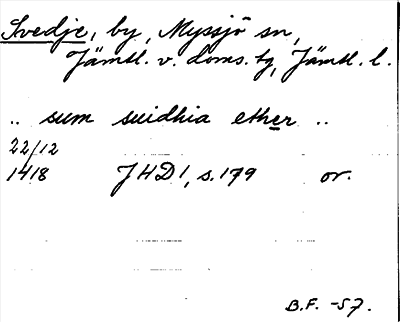 Svedje, by, Myssjö sn,
Jämtl. v. doms. tg, Jämtl. l.
.. sum suidhia ether ..
22/12
1418 JHD 1, s. 179 or.
B.F. -57.